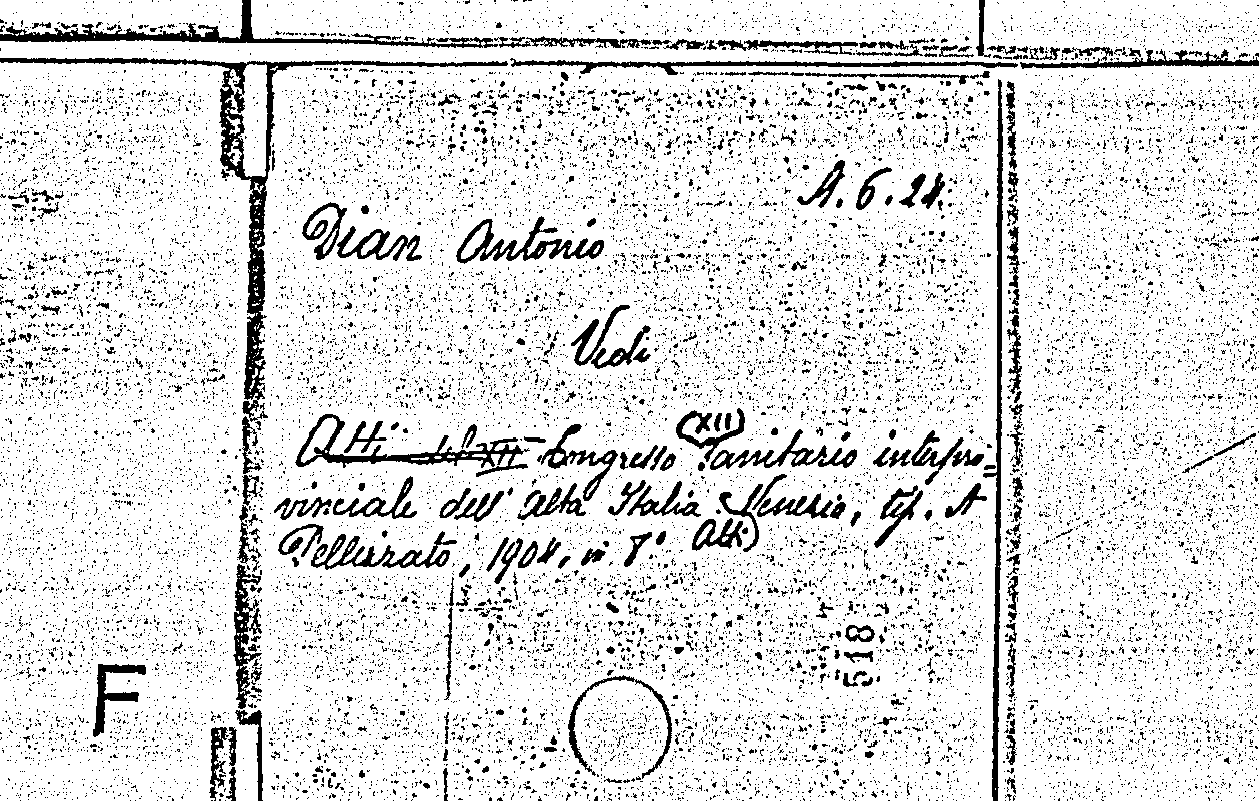 A. 6. 24.
Dian Antonio
Vedi
Atti del XII Congresso (XII) Sanitario interpro=
vinciale dell' Alta Italia. Venezia, tip. A
Atti)
Pellizzato, 1904, in 8°
518
F